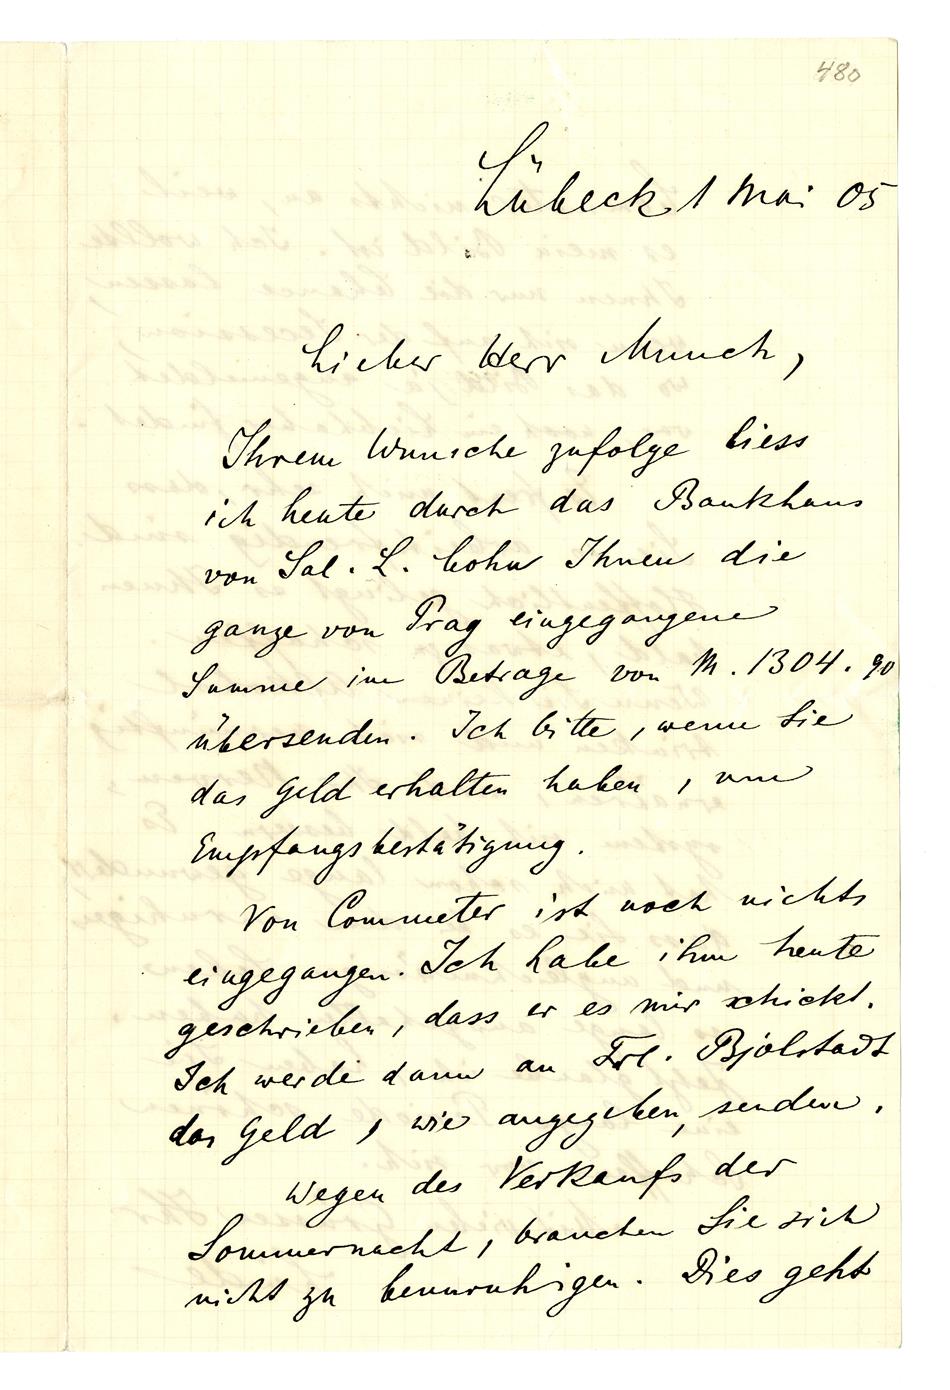 480
Lübeck, 1 Mai 05
Lieber Herr Munch,
Ihrem Wunsche zufolge liess
ich heute durch das Bankhaus
von Sal. L. Cohn Ihnen die
ganze von Prag eingegangene
Summe im Betrage von M. 1304.90
übersenden. Ich bitte, wenn Sie
das Geld erhalten haben, um
Empfangsbestätigung.
Von Commeter ist noch nichts
eingegangen. Ich habe ihm heute
geschrieben, dass er es mir schickt.
Ich werde dann an Frl. Bjölstadt
das Geld, wie angegeben, senden.
Wegen des Verkaufs der
Sommernacht, brauchen Sie sich
nicht zu beunruhigen. Dies geht